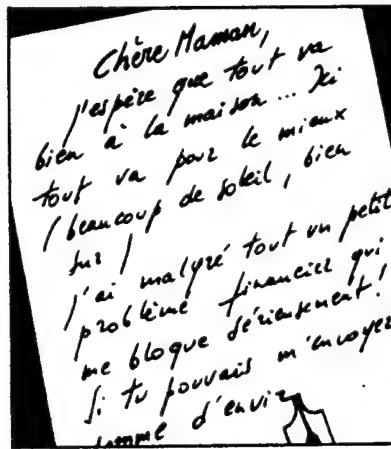 Chère Maman,
j'espère que tout va
bien à la maison... Ici
tout va pour le mieux
(beaucoup de soleil, bien
sur)
j'ai malgré tout un petit
problème financier qui
me bloque sérieusement!
Si tu pouvais m'envoyer
somme d'envir